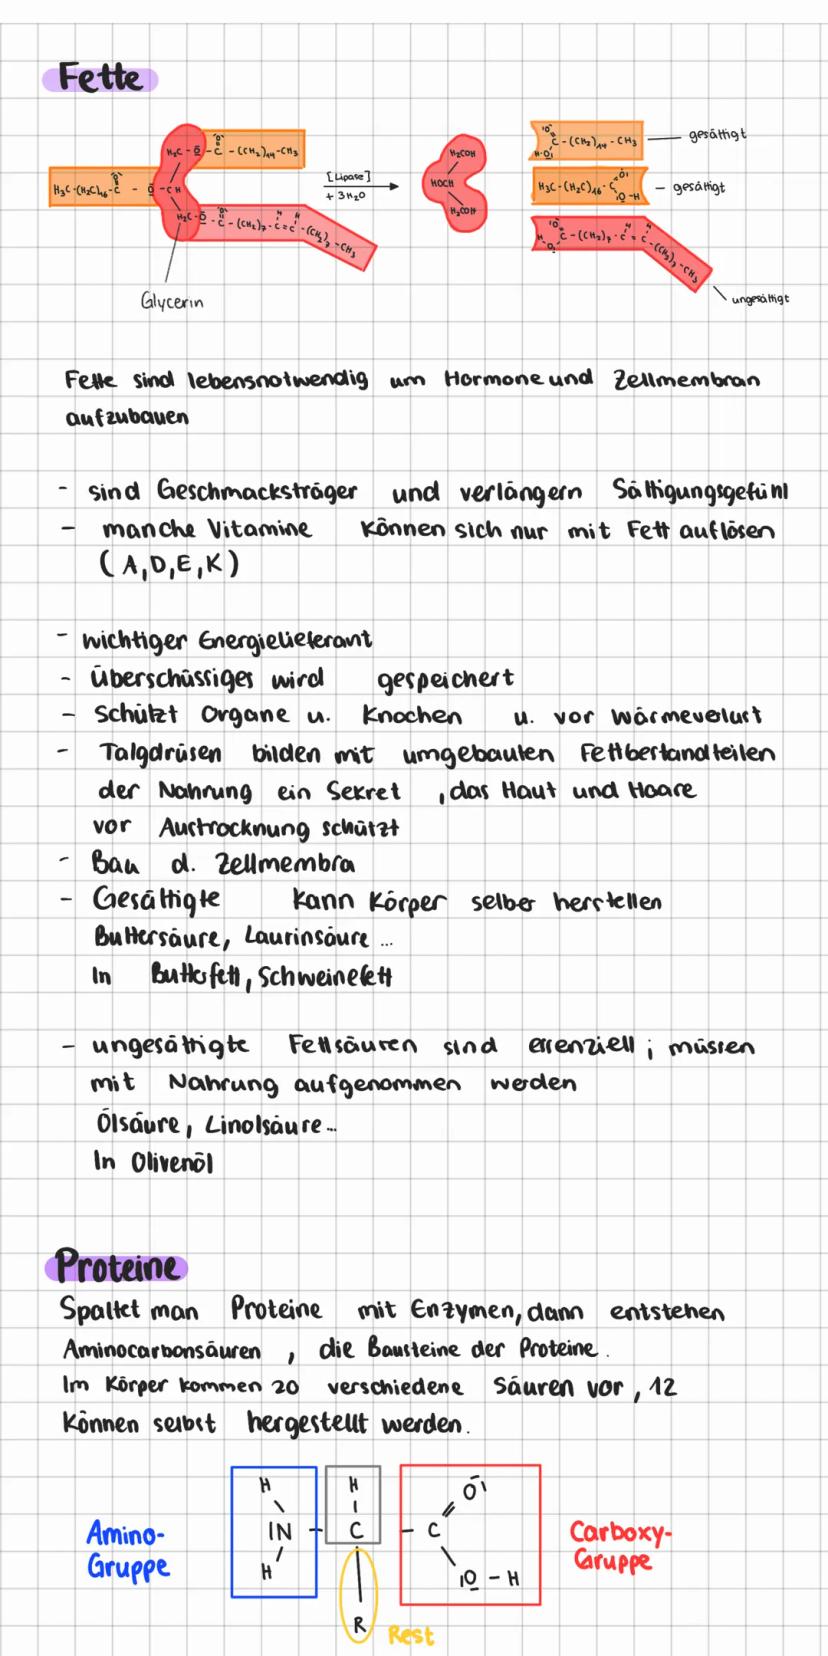 Fette
H₂C - O - C - (CH₂)₁₄ - CH₃
H₃C-(H₂C)₁₆ - C - O - CH
H₂C - O - C - (CH₂)₇ - C = C - (CH₂)₇ - CH₃
Glycerin
[Lipase]
+ 3H₂O
H₂COH
HOCH
H₂COH
C - (CH₂)₁₄ - CH₃
H-O
gesättigt
H₃C - (H₂C)₁₆ - C
O - H
gesättigt
C - (CH₂)₇ - C = C - (CH₂)₇ - CH₃
ungesättigt
Fette sind lebensnotwendig um Hormone und Zellmembran
aufzubauen
- sind Geschmacksträger und verlängern Sättigungsgefühl
- manche Vitamine können sich nur mit Fett auflösen
(A,D,E,K)
- wichtiger Energielieferant
- Überschüssiges wird gespeichert
- Schützt Organe u. Knochen u. vor Wärmeverlust
- Talgdrüsen bilden mit umgebauten Fettbestandteilen
der Nahrung ein Sekret , das Haut und Haare
vor Austrocknung schützt
- Bau d. Zellmembra
- Gesättigte kann Körper selber herstellen
Buttersäure, Laurinsäure ...
In Butterfett, Schweinefett
- ungesättigte Fettsäuren sind essenziell ; müssen
mit Nahrung aufgenommen werden
Ölsäure, Linolsäure...
In Olivenöl
Proteine
Spaltet man Proteine mit Enzymen, dann entstehen
Aminocarbonsäuren , die Bausteine der Proteine.
Im Körper kommen 20 verschiedene Säuren vor , 12
können selbst hergestellt werden.
Amino-
Gruppe
H
H
O
IN - C - C
H
O - H
R
Rest
Carboxy-
Gruppe